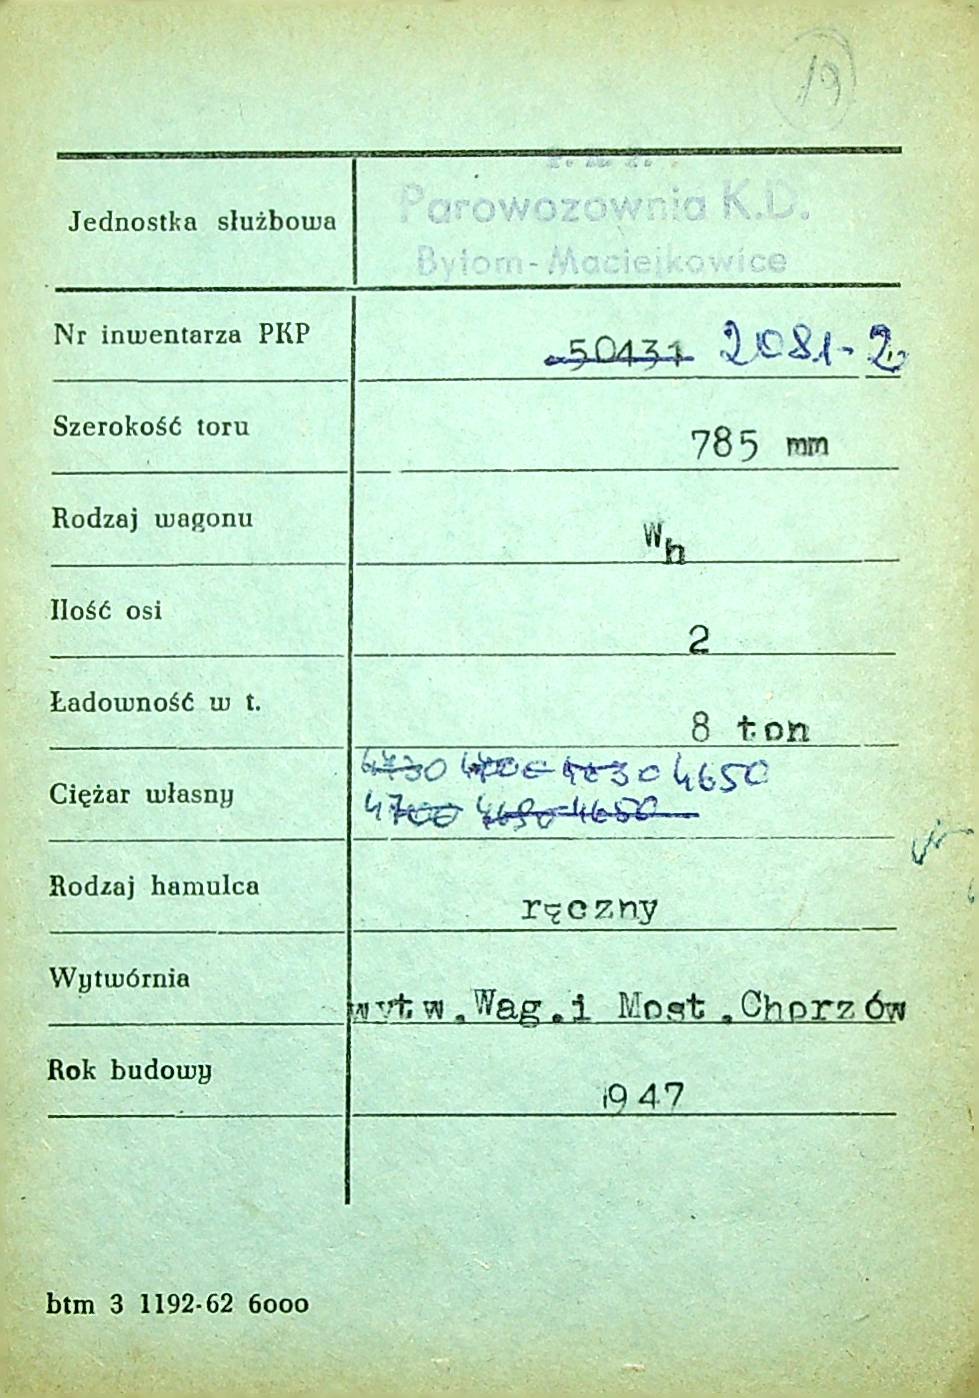 19
P. K. P.
Jednostka służbowa Parowozownia K.D.
Bytom-Maciejkowice
Nr inwentarza PKP 50431 2081-2
Szerokość toru 785 mm
Rodzaj wagonu Wh
Ilość osi 2
Ładowność w t. 8 ton
4730 4700 4630 4650
Ciężar własny
4700 4690 4650
Rodzaj hamulca ręczny
Wytwórnia wytw.Wag.i Most.Chorzów
Rok budowy 1947
btm 3 1192-62 6000